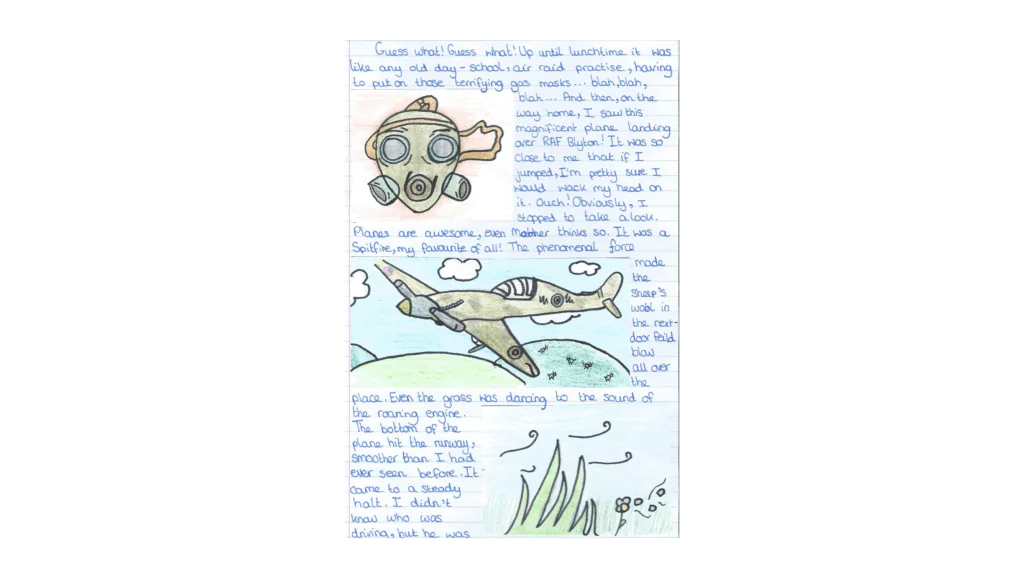 Guess what! Guess what! Up until lunchtime it was
like any old day - school, air raid practise, having
to put on those terrifying gas masks... blah, blah,
blah... And then, on the
way home, I saw this
magnificent plane landing
over RAF Blyton! It was so
close to me that if I
jumped, I'm pretty sure I
would wack my head on
it. Ouch! Obviously, I
stopped to take a look.
Planes are awesome, even Mother thinks so. It was a
Spitfire, my favourite of all! The phenomenal force
made
the
sheep's
wool in
the next-
door feild
blow
all over
the
place. Even the grass was dancing to the sound of
the roaring engine.
The bottom of the
plane hit the runway,
smoother than I had
ever seen before. It
came to a steady
halt. I didn't
know who was
driving, but he was